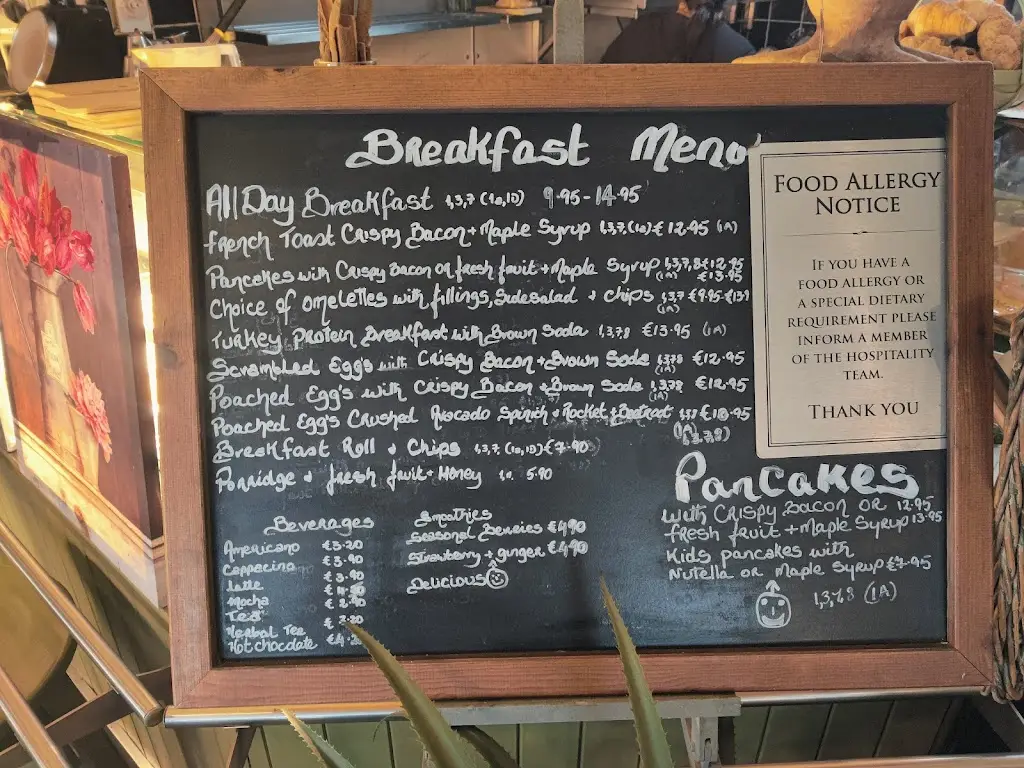 Breakfast Meno
All Day Breakfast 1,3,7 (1a,1D) 9.95 - 14.95
French Toast Crispy Bacon + Maple Syrup 1,3,7,(1a) € 12.95 (1A)
Pancakes with Crispy Bacon or fresh fruit + Maple Syrup 1,3,7,8 €12.95
(1A) €13.95
Choice of omelettes with fillings, Side salad & chips 1,3,7 €9.95-€13.9
(1A)
Turkey Protein Breakfast with Brown Soda 1,3,7,8 €13.95 (1A)
Scrambled Egg's with Crispy Bacon + Brown Soda 1,3,7,8 €12.95
(1A)
Poached Egg's with Crispy Bacon + Brown Soda 1,3,7,8 €12.95
(1A)
Poached Egg's Crushed Avocado Spinich + Rocket + Beetroot
(1,3,7,8)
Breakfast Roll & Chips 1,3,7, (1a,1D) €7.90
Porridge & fresh fruit + Honey 1a 5.90
Beverages
Americano €3.20
Cappacino €3.90
Latte €3.90
Mocha
Tea
Herbal Tee
Hot chocolate
Smoothies
Seasonal Berries €4.90
Strawberry + ginger €4.90
Delicious
PanCakes
with Crispy Bacon OR 12.95
fresh fruit + Maple Syrup 13.95
Kids pancakes with
Nutella or Maple Syrup €7.95
1,3,7,8 (1A)
FOOD ALLERGY
NOTICE
IF YOU HAVE A
FOOD ALLERGY OR
A SPECIAL DIETARY
REQUIREMENT PLEASE
INFORM A MEMBER
OF THE HOSPITALITY
TEAM.
THANK YOU